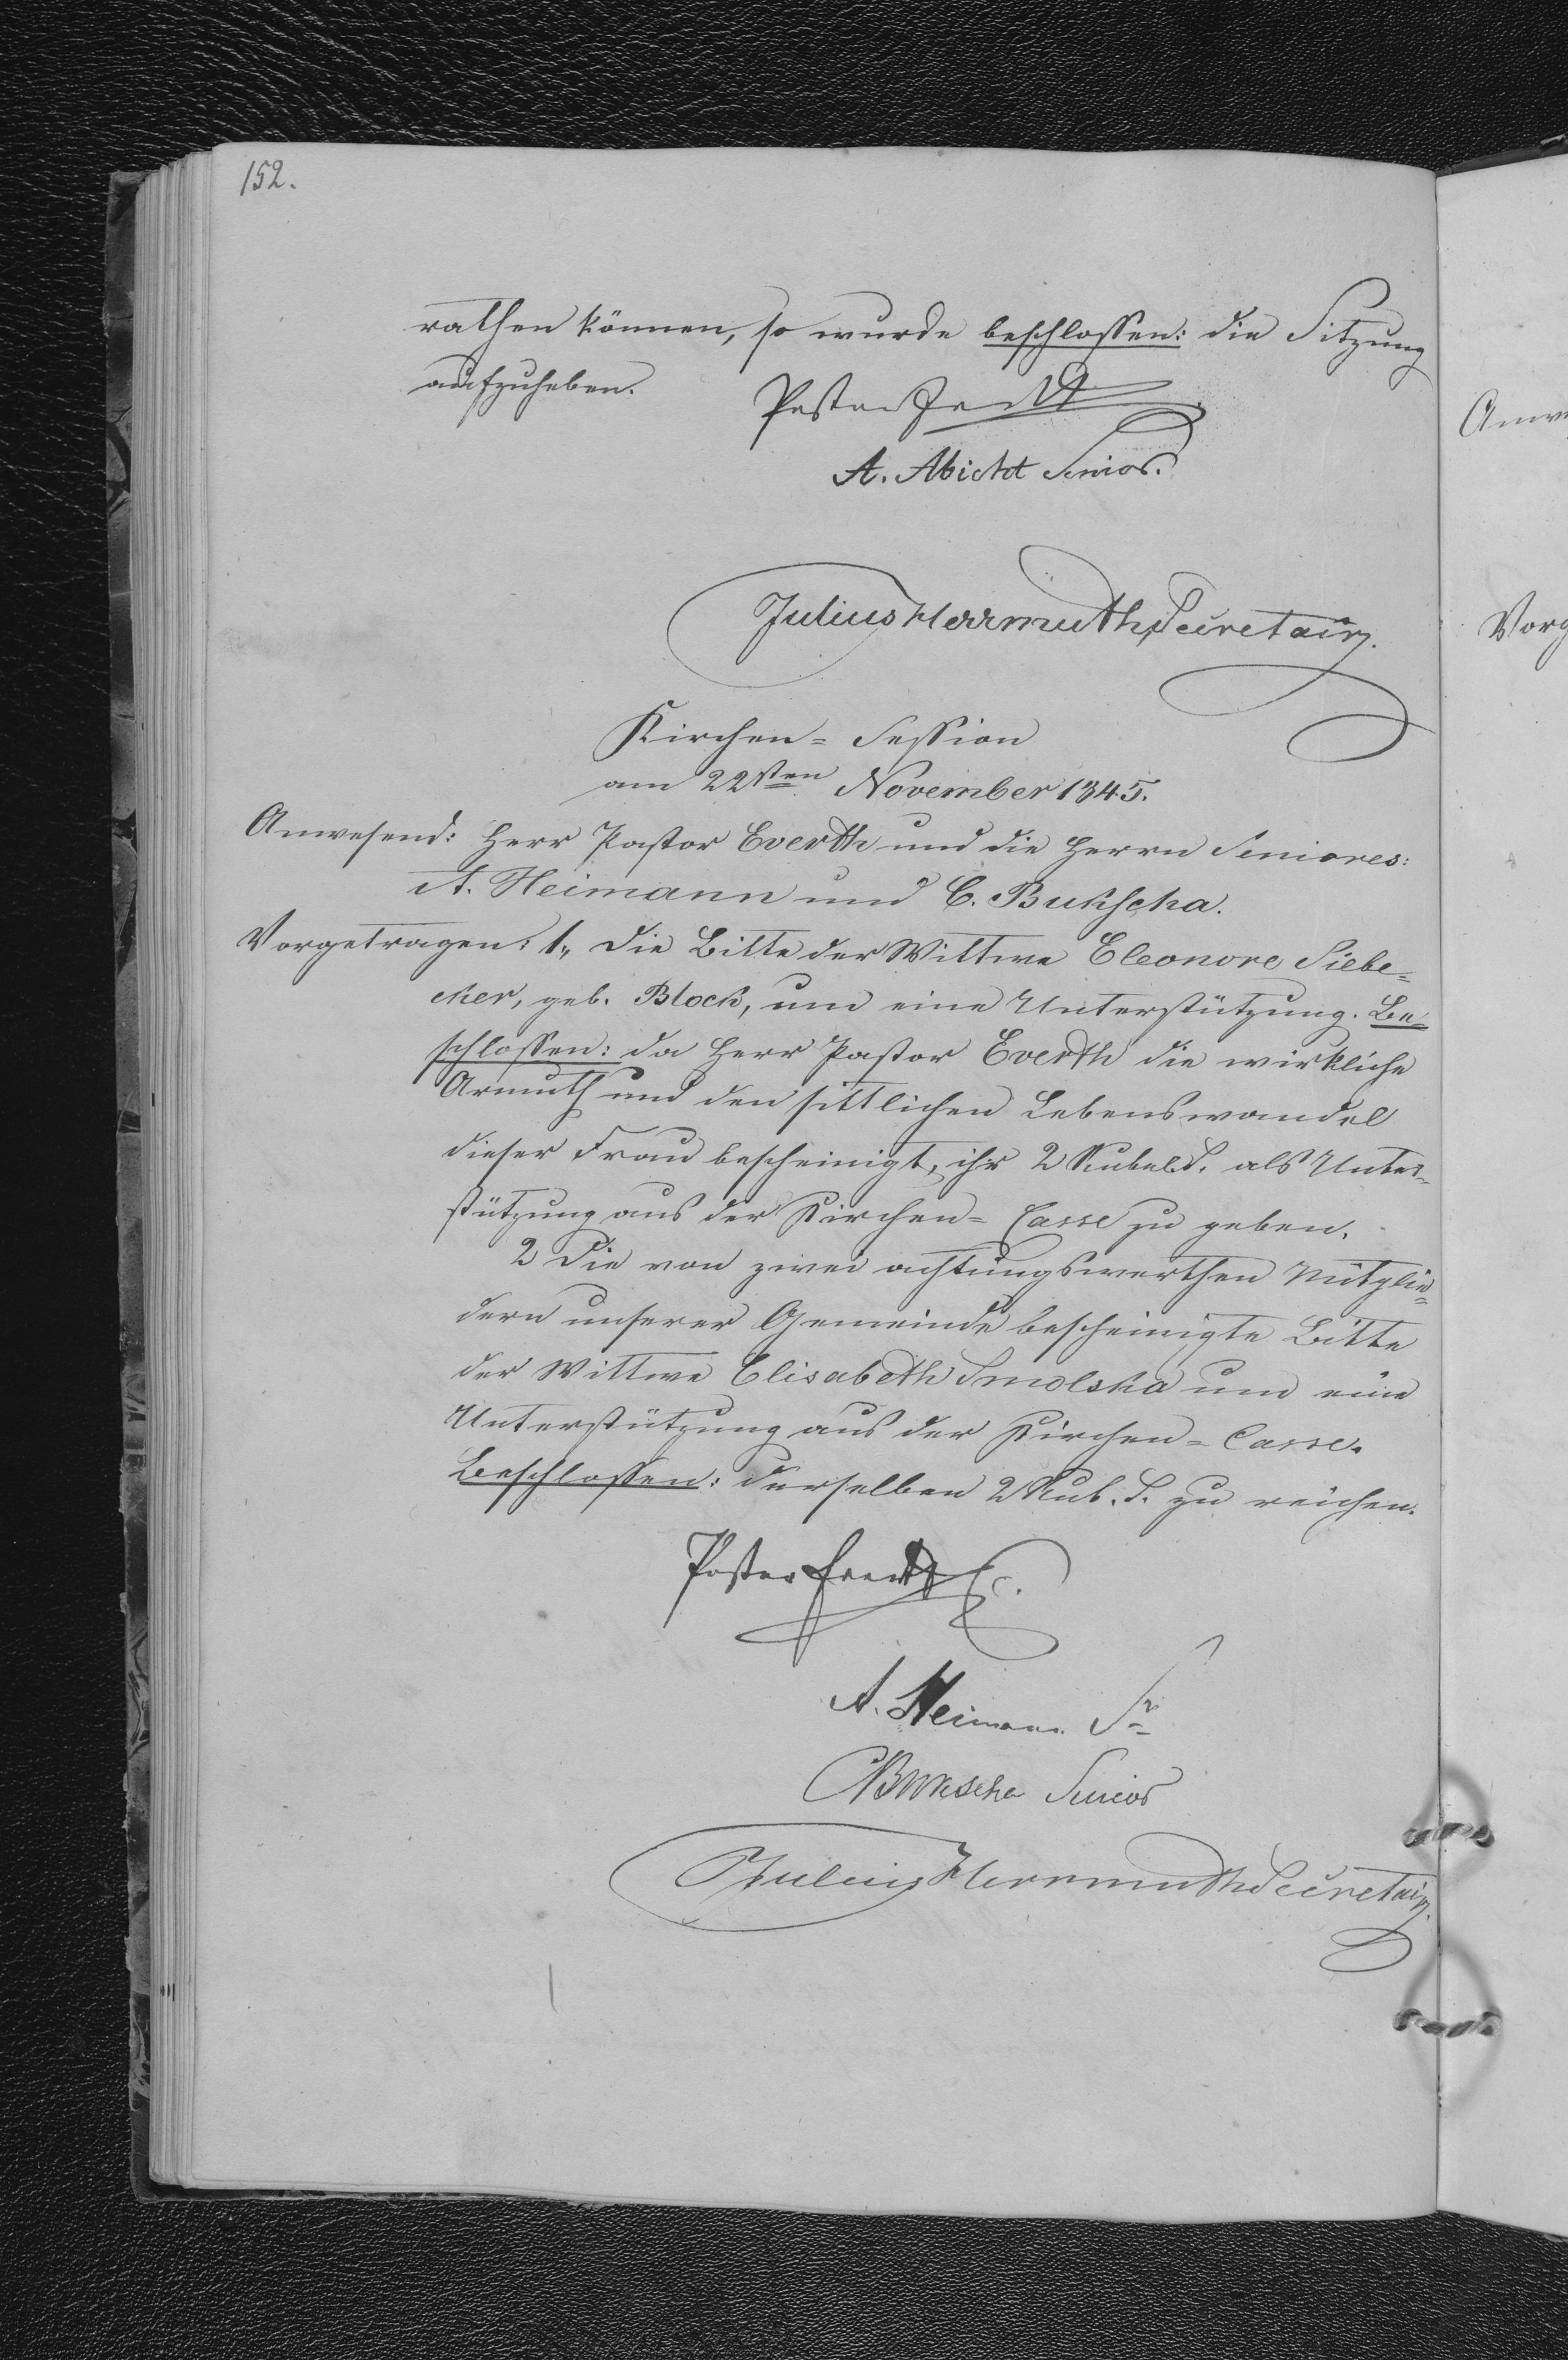 152.
rathen können, so wurde beschlossen: die Sitzung
aufzuheben.
Pastor Everth
A. Abicht Senior.
Julius Herrmuth, Secretair.
Kirchen= Session
am 22sten November 1845.
Anwesend: Herr Pastor Everth und die Herrn Seniores:
A. Heimann und C. Bukscha.
Vorgetragen: 1, Die Bitte der Wittwe Eleonore Siebe=
cker, geb. Block, um eine Unterstützung. Be=
schlossen: da Herr Pastor Everth die wirkliche
Armuth und den sittlichen Lebenswandel
dieser Frau bescheinigt, ihr 2 Rubel S. als Unter=
stützung aus der Kirchen= Casse zu geben.
2 Die von zwei achtungswerthen Mitglie=
dern unserer Gemeinde bescheinigte Bitte
der Wittwe Elisabeth Smolska um eine
Unterstützung aus der Kirchen= Casse.
Beschlossen: derselben 2 Rub. S. zu reichen.
Pastor Everth
A. Heimann Sr
CBukscha Senior
Julius Herrmuth Secretair.
Anwe
Vorg